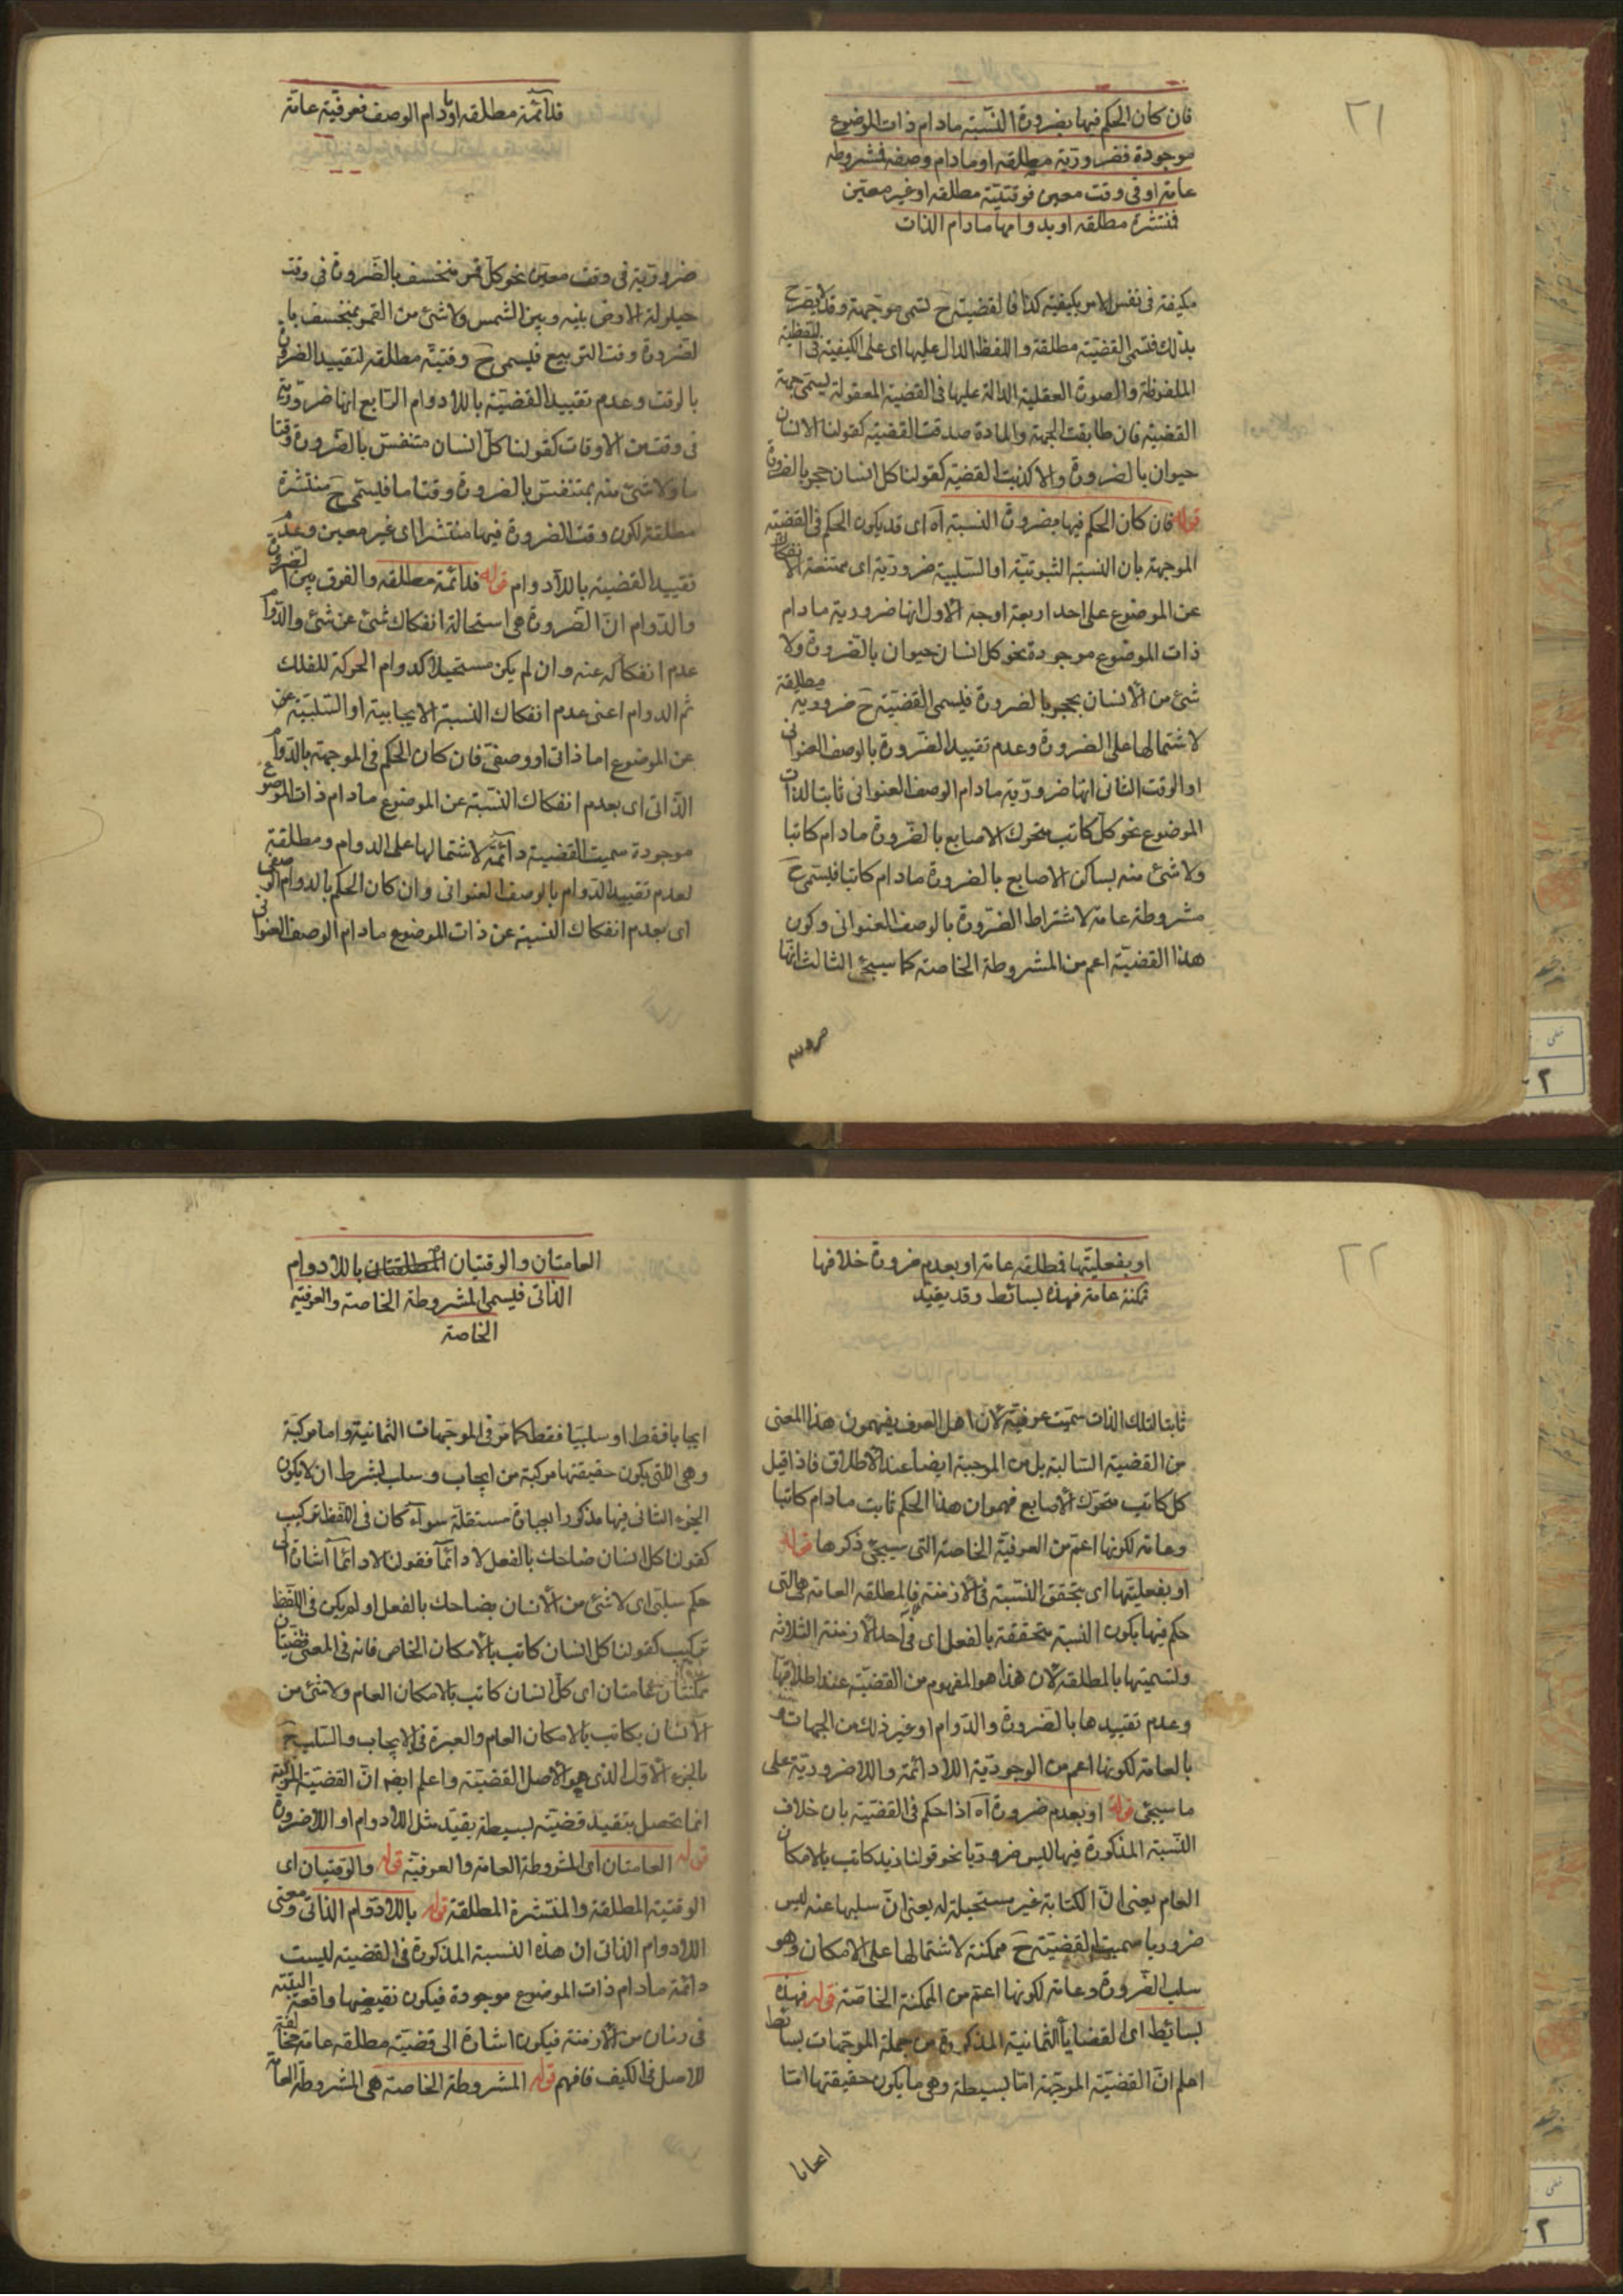 ٢١
فان كان الحكم فيها بضرورة النسبة مادام ذات الموضوع
موجودة فضرورية مطلقه او مادام وصفه فمشروطه
عامه او فى وقت معين فوقتيته مطلقه او غير معين
فمنتشرة مطلقه او بدوامها مادام الذات
مكيفة فى نفس الامر بكيفية كذا فالقضية ح تسمى موجهة وقد لا يصرح
بذلك فتسمى القضية مطلقة واللفظ الدال عليها اى على الكيفية فى القضية
الملفوظة والصورة العقلية الدالة عليها فى القضية المعقولة يسمى جهة
القضية فان طابقت الجهة والمادة صدقت القضية كقولنا الانسان
حيوان بالضرورة والا كذبت القضية كقولنا كل انسان حجر بالضرورة
قوله فان كان الحكم فيها بضرورة النسبة آه اى قد يكون الحكم فى القضية
الموجهة بان النسبة الثبوتية او السلبية ضرورية اى ممتنعة الانفكاك
عن الموضوع على احد اربعة اوجه الاول انها ضرورية مادام
ذات الموضوع موجودة نحو كل انسان حيوان بالضرورة ولا
شئ من الانسان بحجر بالضرورة فيسمى القضية ح ضرورية مطلقة
لاشتمالها على الضرورة وعدم تقييد الضرورة بالوصف العنوانى
او الوقت الثانى انها ضرورية مادام الوصف العنوانى ثابتا لذات
الموضوع نحو كل كاتب متحرك الاصابع بالضرورة مادام كاتبا
ولا شئ منه بساكن الاصابع بالضرورة مادام كاتبا فيسمى ح
مشروطة عامة لاشتراط الضرورة بالوصف العنوانى وكون
هذا القضية اعم من المشروطة الخاصة كما سيجئ الثالث انها
ضروريه
فدائمة مطلقه او مادام الوصف فعرفية عامة
ضرورية فى وقت معين نحو كل قمر منخسف بالضرورة فى وقت
حيلولة الارض بينه وبين الشمس ولا شئ من القمر بمنخسف با
لضرورة وقت التربيع فيسمى ح وقتية مطلقه لتقييد الضرورة
بالوقت وعدم تقييد القضية باللادوام الرابع انها ضرورية
فى وقت من الاوقات كقولنا كل انسان متنفس بالضرورة وقتا
ما ولا شئ منه بمتنفس بالضرورة وقتا ما فيسمى ح منتشرة
مطلقة لكون وقت الضرورة فيها منتشرا اى غير معين وعدم
تقييد القضية باللادوام قوله فدائمة مطلقه والفرق بين الضرورة
والدوام ان الضرورة هى استحالة انفكاك شئ عن شئ والدوام
عدم انفكاكه عنه وان لم يكن مستحيلا كدوام الحركة للفلك
ثم الدوام اعنى عدم انفكاك النسبة الايجابية او السلبية عن
عن الموضوع اما ذاتى او وصفى فان كان الحكم فى الموجهة بالدوام
الذاتى اى بعدم انفكاك النسبة عن الموضوع مادام ذات الموضوع
موجودة سميت القضية دائمة لاشتمالها على الدوام ومطلقة
لعدم تقييد الدوام بالوصف العنوانى وان كان الحكم بالدوام الوصفى
اى بعدم انفكاك النسبة عن ذات الموضوع مادام الوصف العنوانى
٢٢
او بفعليتها فمطلقه عامة او بعدم ضرورة خلافها
فممكنة عامة فهذه بسائط وقد يقيد
ثابتا لتلك الذات سميت عرفية لان اهل العرف يفهمون هذا المعنى
من القضية السالبة بل من الموجبة ايضا عند الاطلاق فاذا قيل
كل كاتب متحرك الاصابع فهموا ان هذا الحكم ثابت مادام كاتبا
وعامة لكونها اعم من العرفية الخاصة التى سيجئ ذكرها قوله
او بفعليتها اى بتحقق النسبة فى الازمنة فالمطلقة العامة هى التى
حكم فيها بكون النسبة متحققة بالفعل اى فى احد الازمنة الثلاثة
وتسميتها بالمطلقة لان هذا هو المفهوم من القضية عند اطلاقها
وعدم تقييدها بالضرورة والدوام او غير ذلك من الجهات و
بالعامة لكونها اعم من الوجودية اللادائمة واللاضرورية على
ما سيجئ قوله او بعدم ضرورة آه اذا حكم فى القضية بان خلاف
النسبة المذكورة فيها ليس ضروريا نحو قولنا زيد كاتب بالامكان
العام يعنى ان الكتابة غير مستحيلة له يعنى ان سلبها عنه ليس
ضروريا سميت القضية ح ممكنة لاشتمالها على الامكان وهو
سلب الضرورة وعامة لكونها اعم من الممكنة الخاصة قوله فهذه
بسائط اى القضايا الثمانية المذكورة من جملة الموجهات بسائط
اعلم ان القضية الموجهة اما بسيطة وهى ما يكون حقيقتها اما
ايجابا
العامتان والوقتيتان المطلقتان باللادوام
الذاتى فيسمى المشروطة الخاصة والعرفية
الخاصة
ايجابا فقط او سلبيا فقط كما مر فى الموجهات الثمانية واما مركبة
وهى التى يكون حقيقتها مركبة من ايجاب وسلب بشرط ان لا يكون
الجزء الثانى فيها مذكورا بعبارة مستقلة سواء كان فى اللفظ تركيب
كقولنا كل انسان ضاحك بالفعل لا دائما فقولنا لا دائما اشارة الى
حكم سلبى اى لا شئ من الانسان بضاحك بالفعل او لم يكن فى اللفظ
تركيب كقولنا كل انسان كاتب بالامكان الخاص فانه فى المعنى قضيتان
ممكنتان عامتان اى كل انسان كاتب بالامكان العام ولا شئ من
الانسان بكاتب بالامكان العام والعبرة فى الايجاب والسلب ح
بالجزء الاول الذى هو الاصل القضية واعلم ايضا ان القضية المركبة
انما تحصل بتقييد قضية بسيطة بقيد مثل اللادوام او اللاضرورة
قوله العامتان اى المشروطة العامة والعرفية قوله والوقتيتان اى
الوقتية المطلقة والمنتشرة المطلقة قوله باللادوام الذاتى ومعنى
اللادوام الذاتى ان هذه النسبة المذكورة فى القضية ليست
دائمة مادام ذات الموضوع موجودة فيكون نقيضها واقعة البتة
فى زمان من الازمنة فيكون اشارة الى قضية مطلقه عامة مخالفة
للاصل فى الكيف فافهم قوله المشروطة الخاصة هى المشروطة العامة